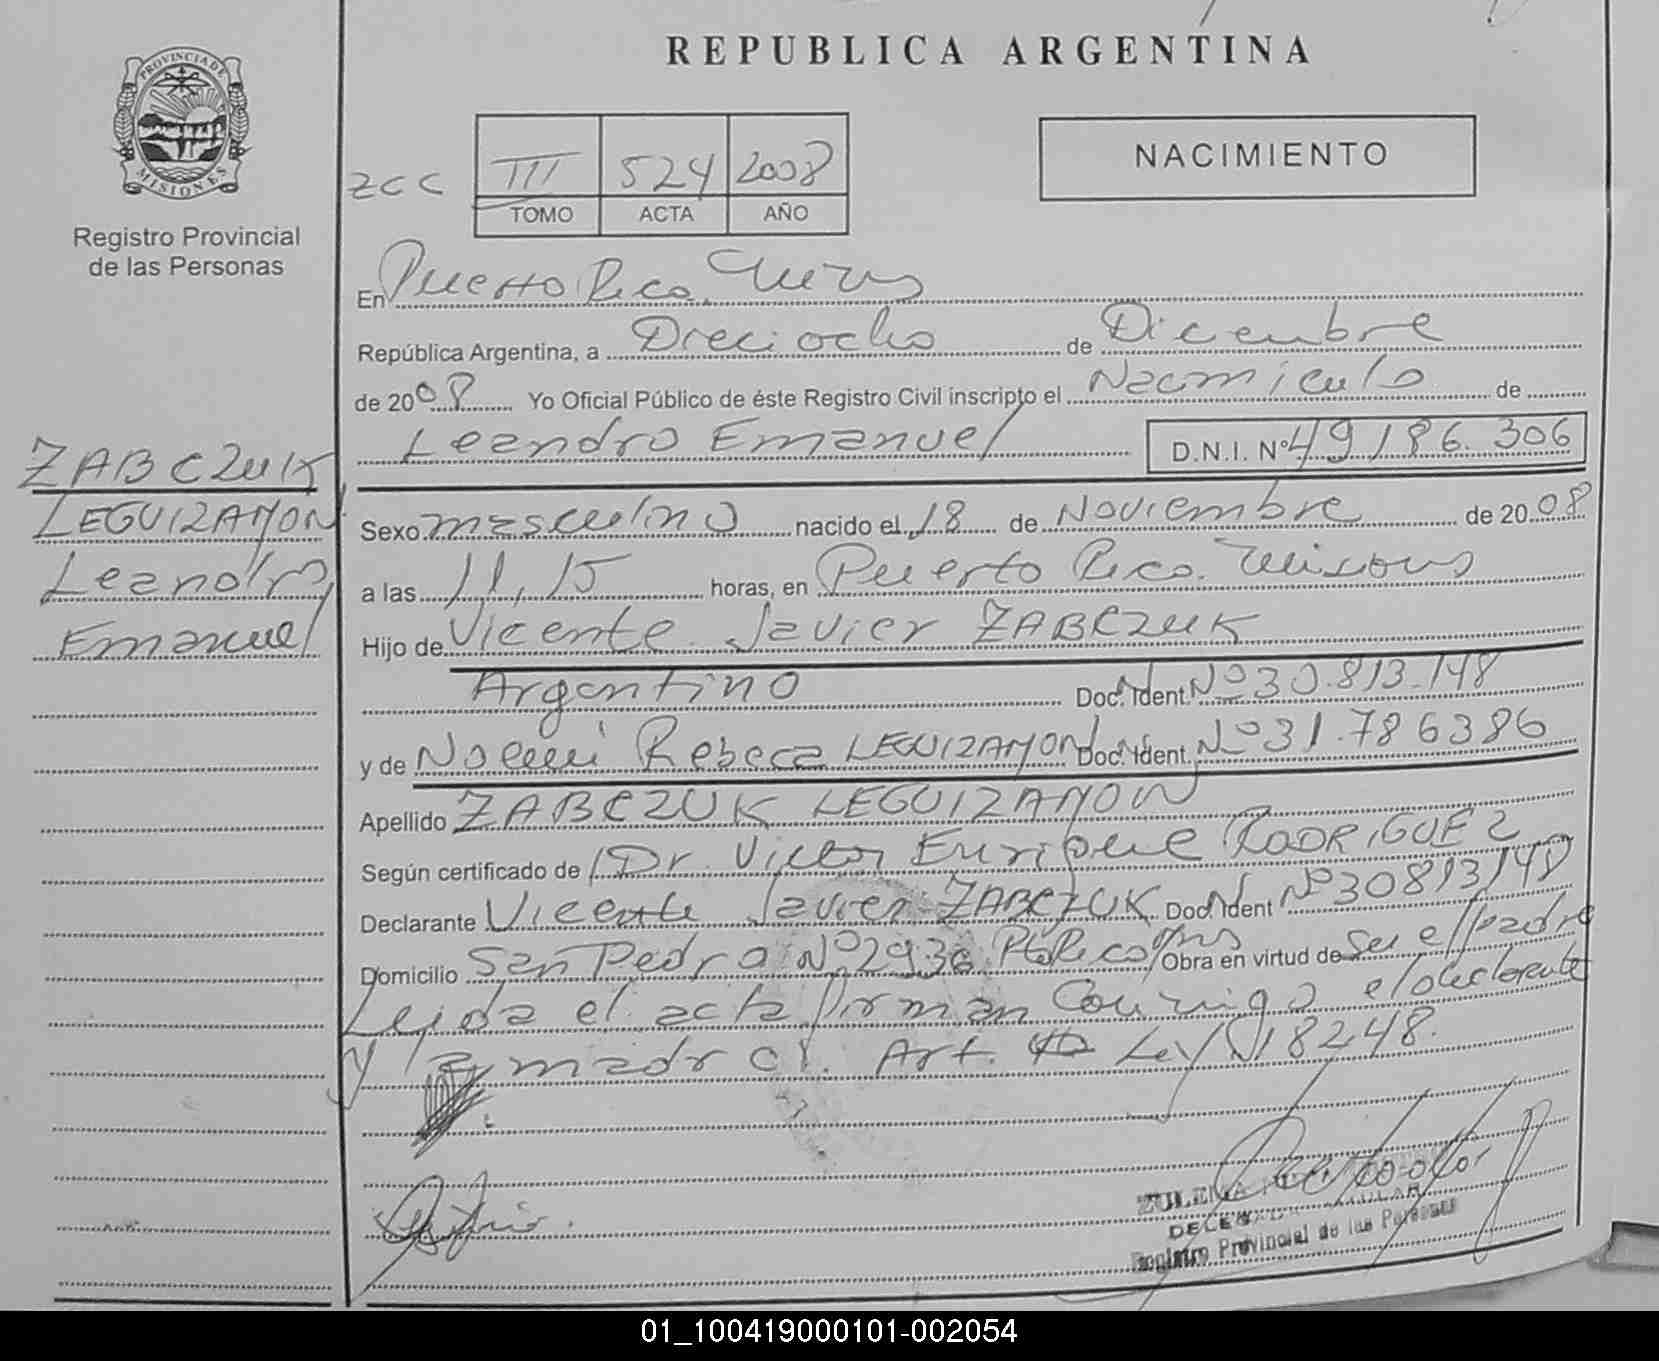 REPUBLICA ARGENTINA
PROVINCIA DE
MISIONES
Registro Provincial
de las Personas
ZCC
III 524 2008
TOMO ACTA AÑO
NACIMIENTO
En Puerto Rico.
República Argentina, a Dieciocho de Diciembre
de 2008 Yo Oficial Público de éste Registro Civil inscripto el Nacimiento de
Leandro Emanuel D.N.I. Nº 49186.306
ZABCZUK
LEGUIZAMON
Leandro
Emanuel
Sexo masculino nacido el 18 de Noviembre de 2008
a las 11,15 horas, en Puerto Rico. Misiones
Hijo de Vicente Javier ZABCZUK
Argentino Doc. Ident. Nº 30.813.148
y de Noemi Rebeca LEGUIZAMON Doc. Ident. Nº 31.786386
Apellido ZABCZUK LEGUIZAMON
Según certificado de Dr. Victor Enrique RODRIGUEZ
Declarante Vicente Javier ZABCZUK Doc. Ident Nº 30813148
Domicilio San Pedro Nº 2936 Pto Rico Mns Obra en virtud de ser el padre
Leida el acta firman conmigo el declarante
y la madre Art. Ley 18248.
ZULEMA
DELEGADA TITULAR
Registro Provincial de las Personas
01_100419000101-002054